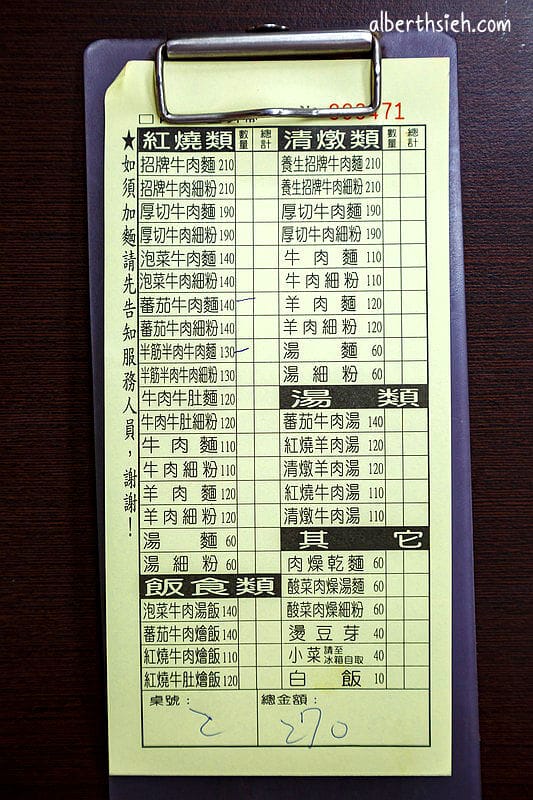 alberthsieh.com
★如須加麵請先告知服務人員，謝謝！
紅燒類 數量 總計
招牌牛肉麵 210
招牌牛肉細粉 210
厚切牛肉麵 190
厚切牛肉細粉 190
泡菜牛肉麵 140
泡菜牛肉細粉 140
蕃茄牛肉麵 140
蕃茄牛肉細粉 140
半筋半肉牛肉麵 130
半筋半肉牛肉細粉 130
牛肉牛肚麵 120
牛肉牛肚細粉 120
牛肉麵 110
牛肉細粉 110
羊肉麵 120
羊肉細粉 120
湯麵 60
湯細粉 60
飯食類
泡菜牛肉湯飯 140
蕃茄牛肉燴飯 140
紅燒牛肉燴飯 110
紅燒牛肚燴飯 120
清燉類 數量 總計
養生招牌牛肉麵 210
養生招牌牛肉細粉 210
厚切牛肉麵 190
厚切牛肉細粉 190
牛肉麵 110
牛肉細粉 110
羊肉麵 120
羊肉細粉 120
湯麵 60
湯細粉 60
湯類
蕃茄牛肉湯 140
紅燒羊肉湯 120
清燉羊肉湯 120
紅燒牛肉湯 110
清燉牛肉湯 110
其它
肉燥乾麵 60
酸菜肉燥湯麵 60
酸菜肉燥細粉 60
燙豆芽 40
小菜 請至冰箱自取 40
白飯 10
桌號： 2
總金額： 270